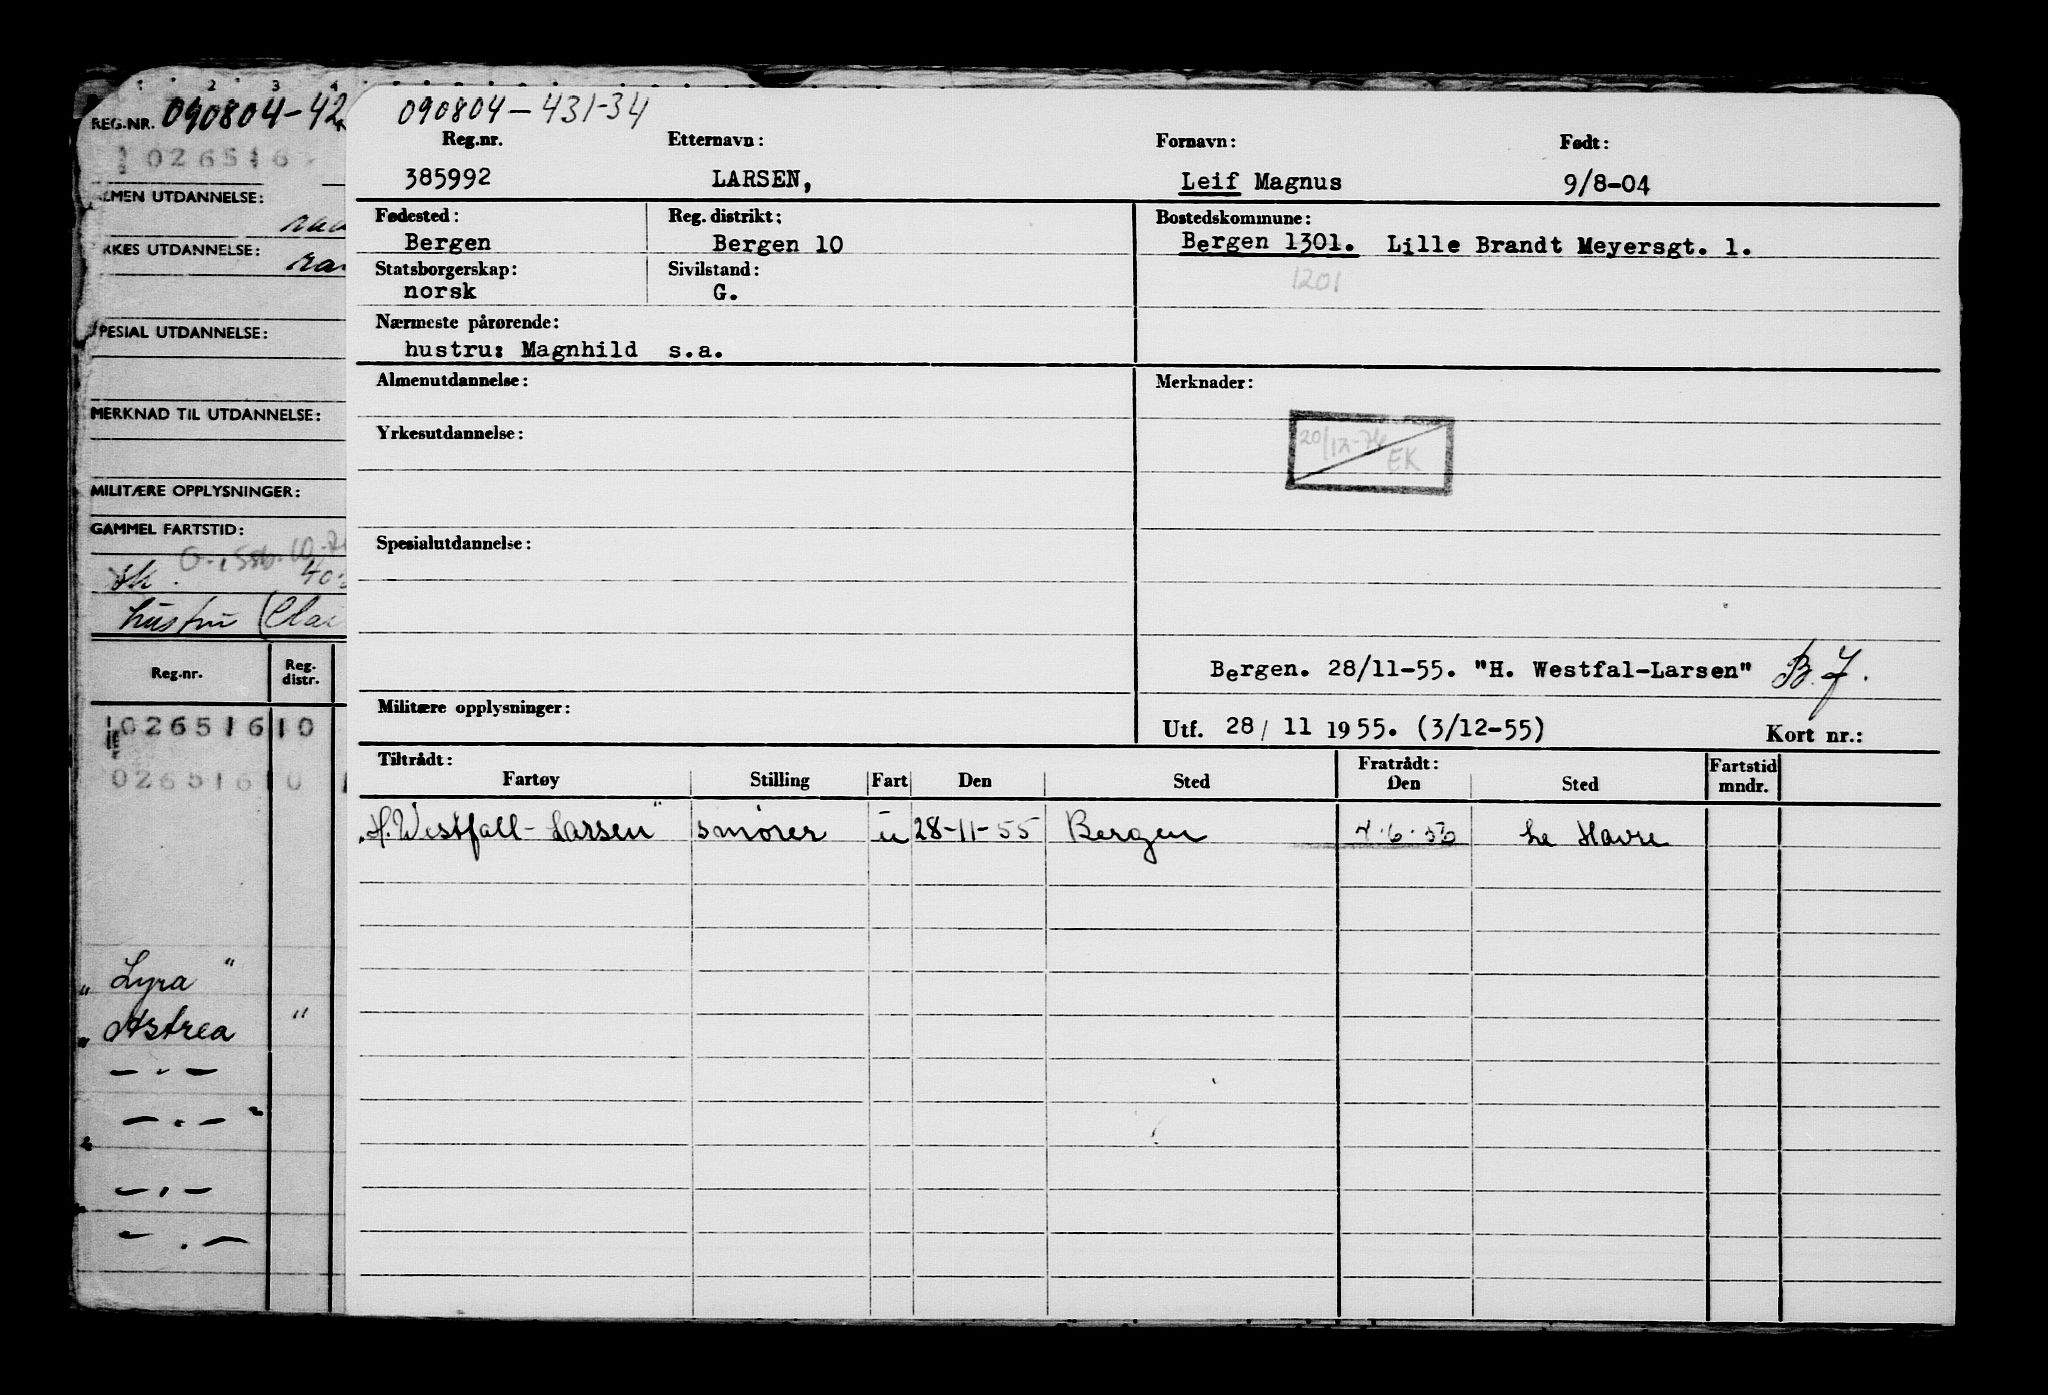 1 2 3 4
REG.NR. 090804-42
026516
LMEN UTDANNELSE:
RKES UTDANNELSE:
SPESIAL UTDANNELSE:
MERKNAD TIL UTDANNELSE:
MILITÆRE OPPLYSNINGER:
GAMMEL FARTSTID:
hustru
Reg.nr. Reg. distr.
026516 10
026516 10
"Lyra"
"Astrea "
090804-431-34
Reg.nr. Etternavn: Fornavn: Født:
385992 LARSEN, Leif Magnus 9/8-04
Fødested: Reg. distrikt: Bostedskommune:
Bergen Bergen 10 Bergen 1301. Lille Brandt Meyersgt. 1.
Statsborgerskap: Sivilstand:
norsk G. 1201
Nærmeste pårørende:
hustru: Magnhild s.a.
Almenutdannelse: Merknader:
Yrkesutdannelse: 20/12-74 EK
Spesialutdannelse:
Bergen. 28/11-55. "H. Westfal-Larsen" B.J.
Militære opplysninger: Utf. 28/ 11 1955. (3/12-55) Kort nr.:
Tiltrådt: Fratrådt: Fartstid
Fartøy Stilling Fart Den Sted Den Sted mndr.
"H. Westfall-Larsen" smører u 28-11-55 Bergen Le Havre